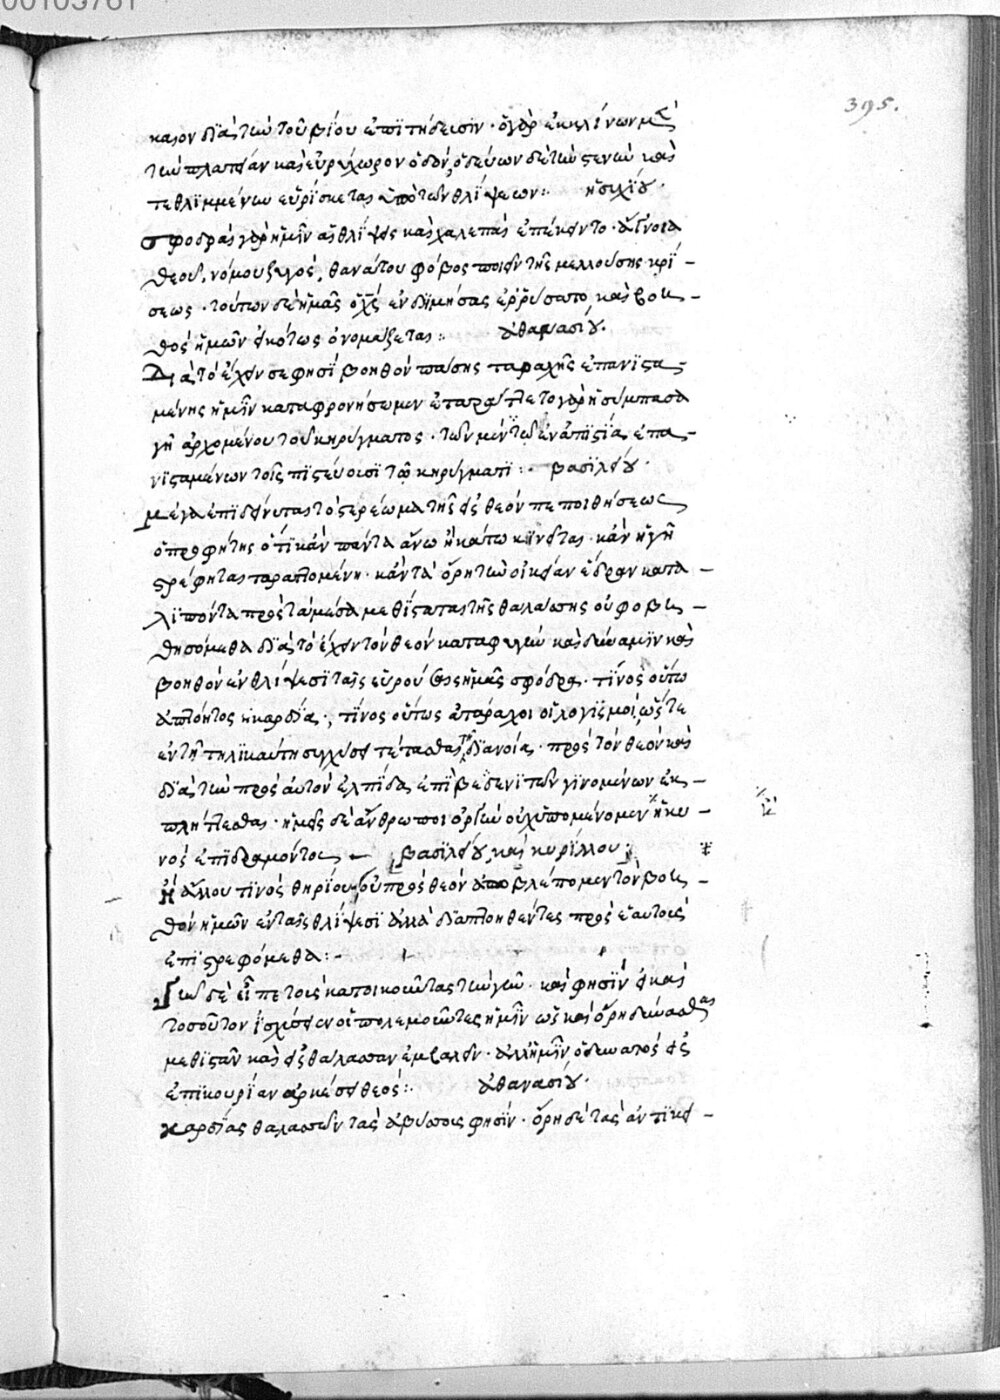 00105761
395.
καιον διὰ τῶν τοῦ βίου ἐπιτηδεύσεων · ὁ γὰρ ἐκκλίνων μὲν
τὴν πλατεῖαν καὶ εὐρύχωρον ὁδόν, ὁδεύων δὲ τὴν στενὴν καὶ
τεθλιμμένην εὑρίσκεται ἀπὸ τῶν θλίψεων :· ἡσυχίου ·
Σφοδραὶ γὰρ ἡμῖν αἱ θλίψεις καὶ χαλεπαὶ ἐπέκειντο · ἄγνοια
θεοῦ, νόμου ζυγὸς, θανάτου φόβος ποιεῖν τῆς μελλούσης κρί-
σεως · τούτων δὲ ἡμᾶς ὁ χς ἐνδημήσας ἐρρύσατο, καὶ βοη-
θὸς ἡμῶν εἰκότως ὀνομάζεται :· ἀθανασίου ·
Διὰ τὸ ἔχειν σε φησὶ βοηθὸν πάσης ταραχῆς ἐπανιστα-
μένης ἡμῖν καταφρονήσωμεν ἐταράττετο γὰρ ἡ σύμπασα
γῆ ἀρχομένου τοῦ κηρύγματος · τῶν μὲν τῶν ἐν ἀπιστίᾳ ἐπα-
νισταμένων τοῖς πιστεύουσι τῷ κηρύγματι :· βασιλείου ·
Μέγα ἐπιδείκνυται τὸ στερέωμα τῆς εἰς θεὸν πεποιθήσεως
ὁ προφήτης ὅτι κἂν πάντα ἄνω ἢ κάτω κινεῖται · κἂν ἡ γῆ
στρέφηται ταραττομένη · κἂν τὰ ὄρη τὴν οἰκείαν ἕδραν κατα-
λιπόντα πρὸς τὰ μέσα μεθίσταται τῆς θαλάσσης οὐ φοβη-
θησόμεθα διὰ τὸ ἔχειν τὸν θεὸν καταφυγὴν καὶ δύναμιν καὶ
βοηθὸν ἐν θλίψεσι ταῖς εὑρούσαις ἡμᾶς σφόδρα · τίνος οὕτω
ἀπτόητος ἡ καρδία · τίνος οὕτως ἀτάραχοι οἱ λογισμοὶ, ὥστε
ἐν τῇ τηλικαύτῃ συγχύσει τετάσθαι τῇ διανοίᾳ · πρὸς τὸν θεὸν καὶ
διὰ τὴν πρὸς αὐτὸν ἐλπίδα ἐπὶ βεδενὶ τῶν γινομένων ἐκ-
πλήττεσθαι · ἡμεῖς δὲ ἄνθρωποι ὀργὴν οὐχ ὑπομένομεν ἢ κυ-
νὸς ἐπιδραμόντος βασιλείου, καὶ κυρίλλου ·
ἢ ἄλλου τινὸς θηρίου οὐ πρὸς θεὸν ἀποβλέπομεν τὸν βοη-
θὸν ἡμῶν ἐν ταῖς θλίψεσι ἀλλὰ διαπτοηθέντες πρὸς ἑαυτοὺς
ἐπιστρεφόμεθα :-
Γῆν δὲ εἶπε τοὺς κατοικοῦντας τὴν γῆν · καὶ φησὶν εἰ καὶ
τοσοῦτον ἰσχύσειεν οἱ πολεμοῦντες ἡμῖν ὡς καὶ ὄρη δύνασθαι
μεθιστᾶν καὶ εἰς θάλασσαν ἐμβαλεῖν · ἀλλ' ἡμῖν ὁ δυνατὸς εἰς
ἐπικουρίαν ἀρκέσει θεός :· ἀθανασίου ·
Καρδίας θαλασσῶν τὰς ἀβύσσους φησίν · ὄρη δὲ τὰς ἀντικει-